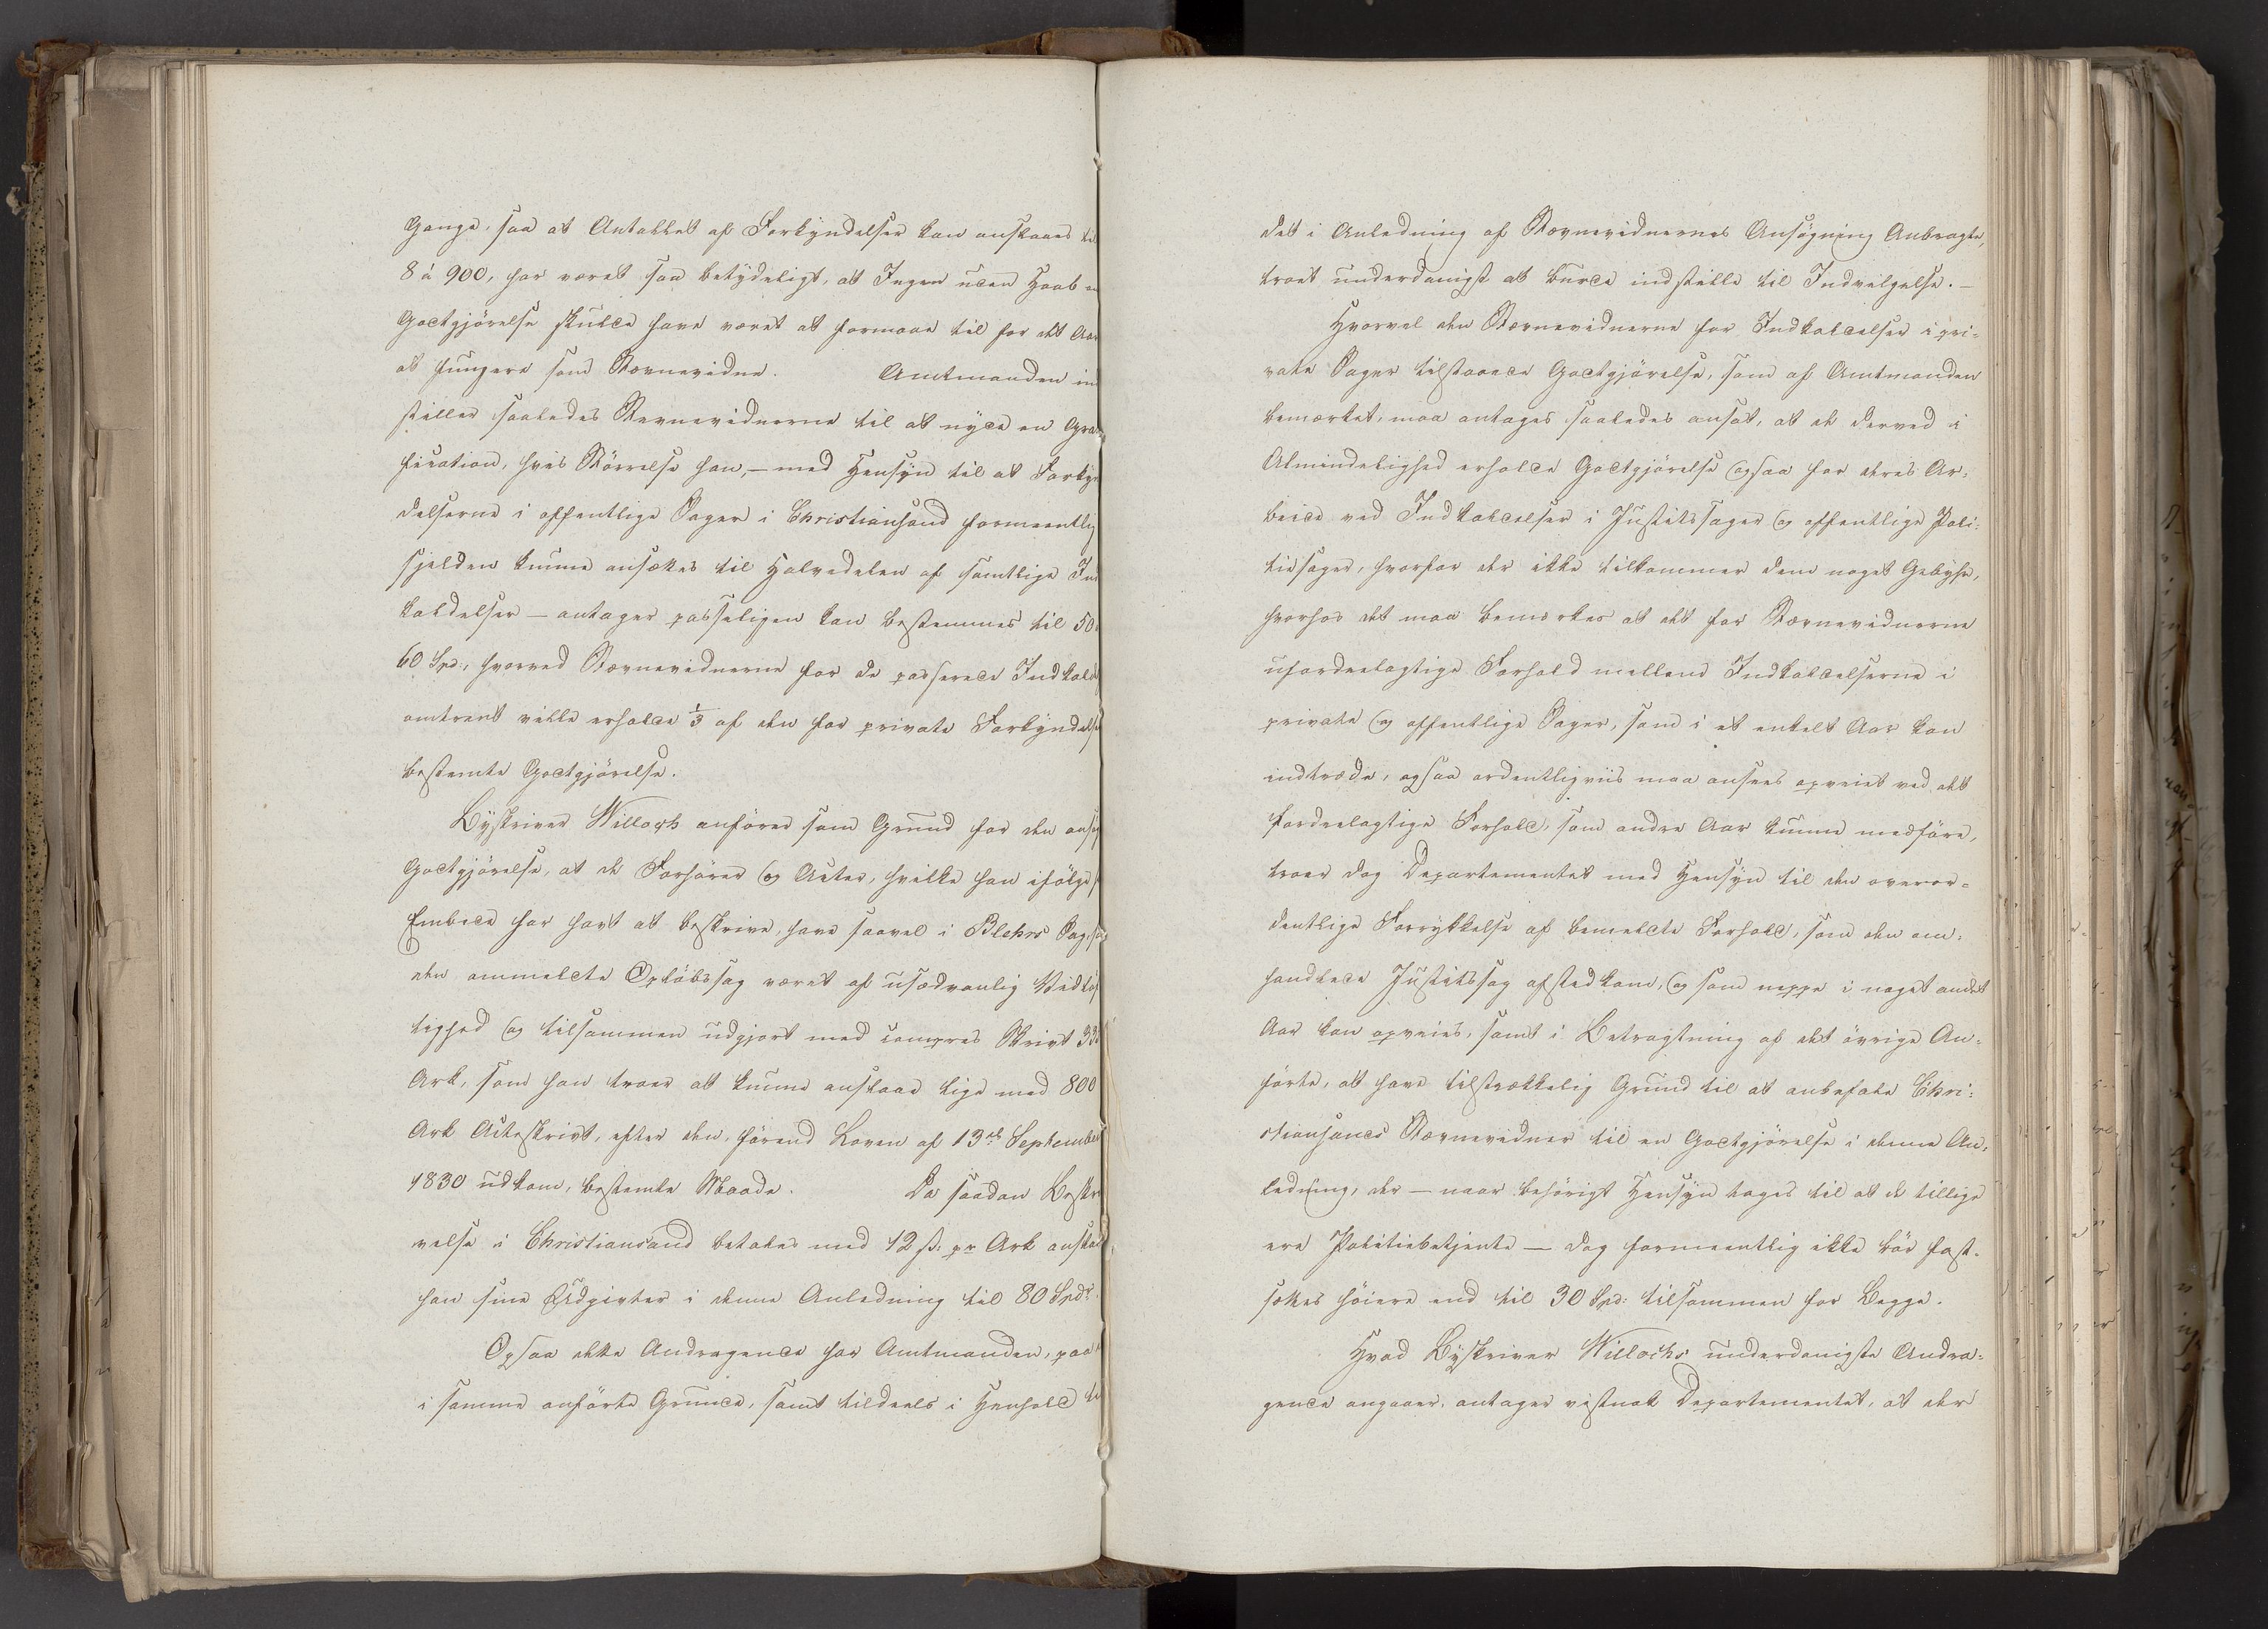 Gange, saa at Antallet af Forkyndelser kan anslaaes til
8 à 900, har været saa betydeligt, at Ingen uden Haab om
Godtgjörelse skulde have været at formaae til for det Aar
at fungere som Stevnevidne. Amtmanden ind
stiller saaledes Stevnevidnerne til at nyde en Grati
fication, hvis Störrelse han, – med Hensyn til at Forkyn
delserne i offentlige Sager i Christiansand formeentlig
sjelden kunne ansættes til Halvedelen af samtlige Ind
kaldelser – antager passeligen kan bestemmes til 50 à
60 Spd:, hvorved Stævnevidnerne for de passerede Indkald
omtrent ville erholde 1/3 af den for private Forkyndelser
bestemte Godtgjörelse.
Byskriver Willoch anförer som Grund for den ansøg
Godtgjörelse, at de Forhörer og Acter, hvilke han ifölge sit
Embede har havt at beskrive, have saavel i Blehrs Sag, som
den ommeldte Oplöbssag været af usædvanlig Vidtløf
tighed og tilsammen udgjort med compres Skrivt 33
Ark, som han troer at kunne anslaae lige med 800
Ark Acteskrivt, efter den, förend Loven af 13de September
1830 udkom, bestemte Maade. Da saadan Beskri
velse i Christiansand betales med 12 ß: pr Ark anslaaer
han sine Udgivter i denne Anledning til 80 Spdr.
Ogsaa dette Andragende har Amtmanden, paa
i samme anförte Grunde, samt tildeels i Henhold til
det i Anledning af Stævnevidnernes Ansögning Anbragte,
troet underdanigst at burde indstille til Indvilgelse. –
Hvorvel den Stævnevidnerne for Indkaldelser i pri-
vate Sager tilstaaede Godtgjörelse, som af Amtmanden
bemærket, maa antages saaledes ansat, at de derved i
Almindelighed erholde Godtgjörelse ogsaa for deres Ar-
beide ved Indkaldelser i Justitssager og offentlige Poli-
tiesager, hvorfor der ikke tilkommer dem noget Gebyhr,
hvorhos det maa bemærkes at det for Stævnevidnerne
ufordeelagtige Forhold mellem Indkaldelserne i
private og offentlige Sager, som i et enkelt Aar kan
indtræde, ogsaa ordentligviis maa ansees opveiet ved det
fordeelagtige Forhold, som andre Aar kunne medföre,
troer dog Departementet med Hensyn til den overor-
dentlige Forrykkelse af bemeldte Forhold, som den om-
handlede Justitssag afstedkom, og som neppe i noget andet
Aar kan opveies, samt i Betragtning af det övrige An-
förte, at have tilstrækkelig Grund til at anbefale Chri-
stiansands Stævnevidner til en Godtgjörelse i denne An-
ledning, der – naar behörigt Hensyn tages til at de tillige
ere Politiebetjente – dog formeentlig ikke bör fast-
sættes höiere end til 30 Spd: tilsammen for Begge.
Hvad Byskriver Willochs underdanigste Andra-
gende angaaer, antager vistnok Departementet, at der